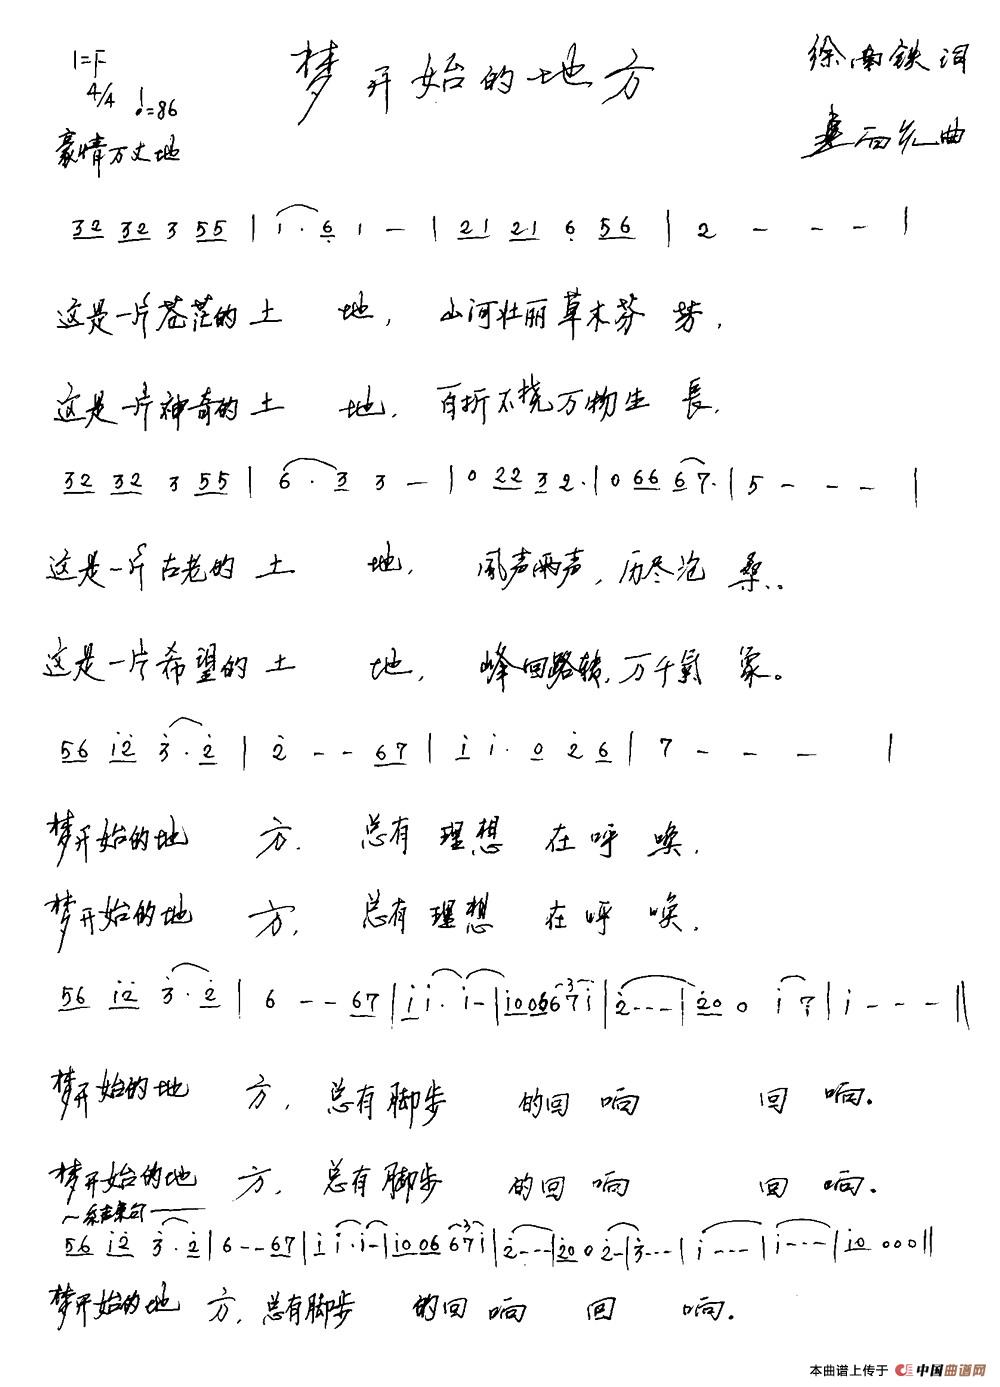 1=F
梦开始的地方
徐南铁 词
4/4 ♩=86
豪情万丈地
曲
32 32 3 55 | i · 6 1 — | 21 21 6 56 | 2 — — — |
这是一片苍茫的土 地， 山河壮丽草木芬 芳，
这是一片神奇的土 地， 百折不挠万物生 長，
32 32 3 55 | 6 · 3 3 — | 0 22 3 2· | 0 66 67· | 5 — — — |
这是一片古老的 土 地， 风声雨声，历尽沧 桑..
这是一片希望的 土 地， 峰回路转，万千氣 象。
56 i2 3·2 | 2 — — 67 | i i· 0 2 6 | 7 — — — |
梦开始的地 方， 总有 理想 在 呼 唤，
梦开始的地 方， 总有理想 在 呼 唤，
56 i2 3·2 | 6 — — 67 | i i· i — | i0 06 67i | 2 — — — | 20 0 i 7 | i — — — ‖
梦开始的地 方， 总有脚步 的回 响 回 响。
梦开始的地 方， 总有脚步 的回 响 回 响。
结束句
56 i2 3·2 | 6 — — 67 | i i· i — | i0 06 67i | 2 — — — | 20 0 2 — | 3 — — — | i — — — | i — — — | i0 0 0 0 ‖
梦开始的地 方，总有脚步 的回 响 回 响。
本曲谱上传于 中国曲谱网